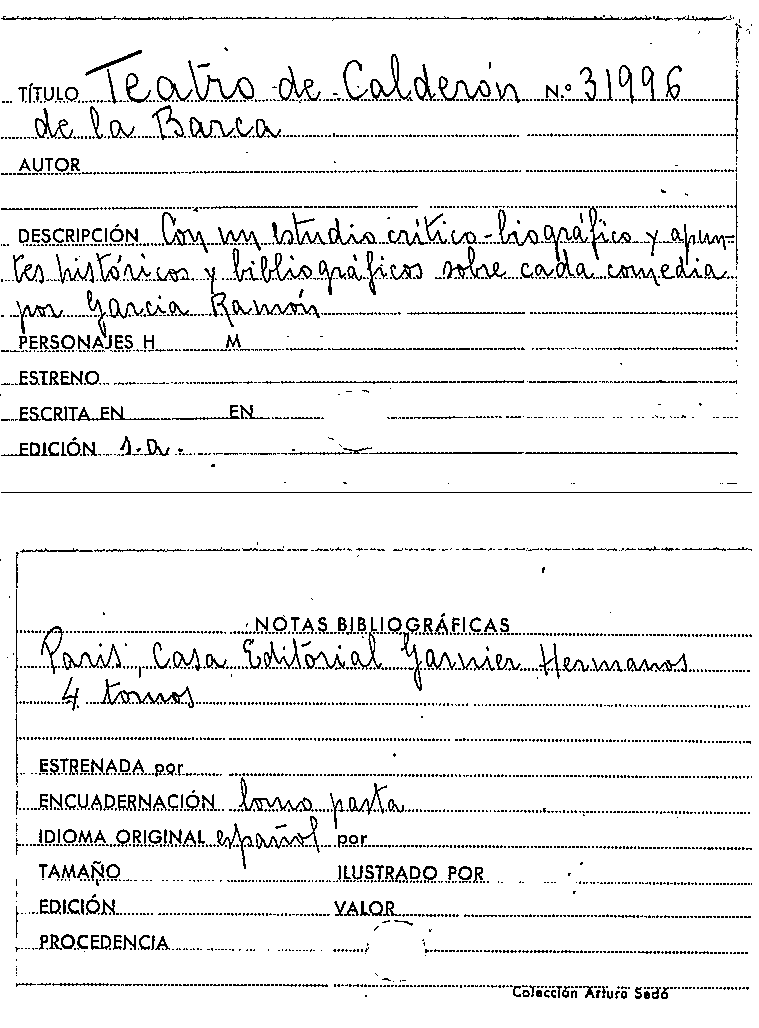 TÍTULO Teatro de Calderón N.º 31996
de la Barca
AUTOR
DESCRIPCIÓN Con un estudio crítico-biográfico y apun-
tes históricos y bibliográficos sobre cada comedia
por Garcia Ramón
PERSONAJES H M
ESTRENO
ESCRITA EN EN
EDICIÓN s.a.
NOTAS BIBLIOGRÁFICAS
Paris, Casa Editorial Garnier Hermanos
4 tomos
ESTRENADA por
ENCUADERNACIÓN lomo pasta
IDIOMA ORIGINAL español por
TAMAÑO ILUSTRADO POR
EDICIÓN VALOR
PROCEDENCIA
Colección Arturo Sedó